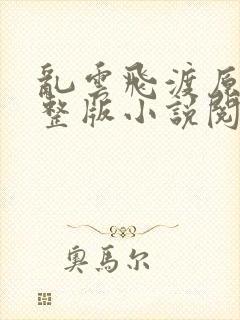 亂雲飛渡原
整版小說閱
奧馬尔